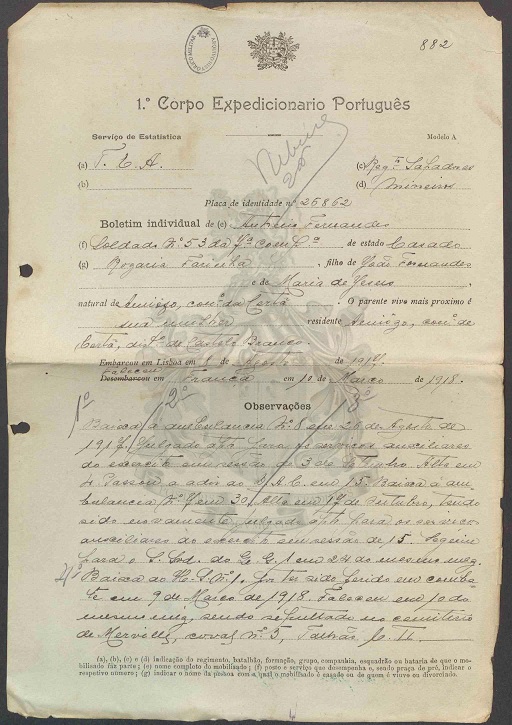 882
1.º Corpo Expedicionario Português
Serviço de Estatistica
Modelo A
(a) T. C. A. (c) Regto Sapadores
(b) (d) mineiros
Placa de identidade n.º 26862
Boletim individual de (e) Antonio Fernandes
(f) Soldado Nº 53 da 7ª Compª de estado Casado
(g) Rozaria Farinha, filho de João Fernandes
e de Maria de Jesus
natural de con.º da Certã O parente vivo mais proximo é
sua mulher residente con.º de
Certã, dist.º de Castelo Branco.
Embarcou em Lisboa em de Agosto de 1917
Faleceu
Desembarcou em França em 10 de Março de 1918.
1º 2º 3º
Observações
Baixa á ambulancia Nº 8 em 26 de Agosto de
1917. Julgado apto para os serviços auxiliares
do exercito em sessão de 3 de Setembro. Alta em
4. Passou a adido ao D. A. C. em 15. Baixa á am-
bulancia Nº 7 em 30. Alta em 17 de Outubro, tendo
sido novamente julgado apto para os serviços
auxiliares do exercito em sessão de 15. Seguiu
para o Q. G. 1 em 24 do mesmo mez.
4º Baixa ao Nº 1. por ter sido ferido em comba-
te em 9 de Março de 1918. Faleceu em 10 do
mesmo mez, sendo sepultado no cemiterio
de Merville, coval nº 5, Talhão
(a), (b), (c) e (d) indicação do regimento, batalhão, formação, grupo, companhia, esquadrão ou bataria de que o mo-
bilisado fàz parte; (e) nome completo do mobilisado; (f) posto e serviço que desempenha e, sendo praça de pré, indicar o
respetivo numero; (g) indicar o nome da pessoa com a qual o mobilisado é casado ou de quem é viuvo ou divorciado.